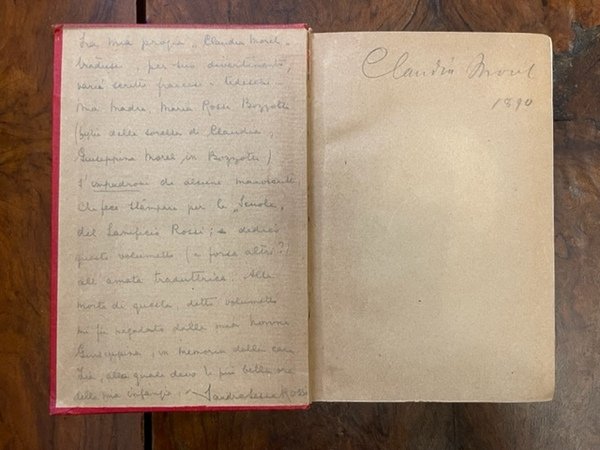 La mia prozia „Claudia Morel„
tradusse, per suo divertimento,
varii scritti francesi e tedeschi.
Mia madre, Maria Rossi Bozzotti
(figlia della sorella di Claudia,
Giuseppina Morel in Bozzotti)
s'impadronì di alcuni manoscritti
che fece stampare per le „Scuole„
del Lanificio Rossi; e dedicò
questo volumetto (e forse altri?)
all'amata traduttrice. Alla
morte di questa, detto volumetto
mi fu regalato dalla mia nonna
Giuseppina, in memoria della cara
Zia, alla quale devo le più belle ore
della mia infanzia. Sandra Rossi
Claudia Morel
1890